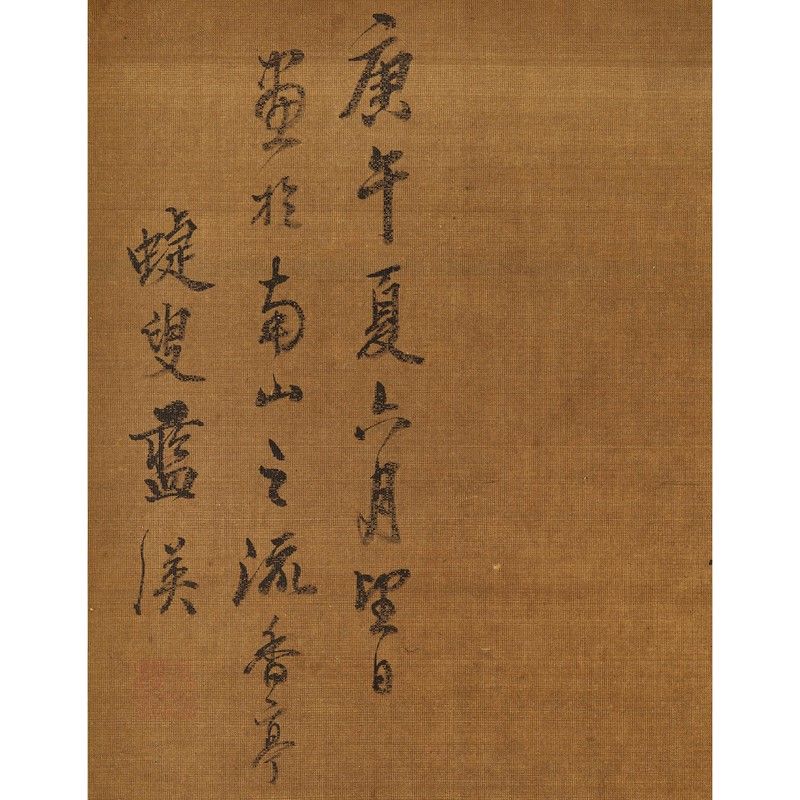 庚午夏六月望日
畫於南山之流香亭
蜨叟藍瑛